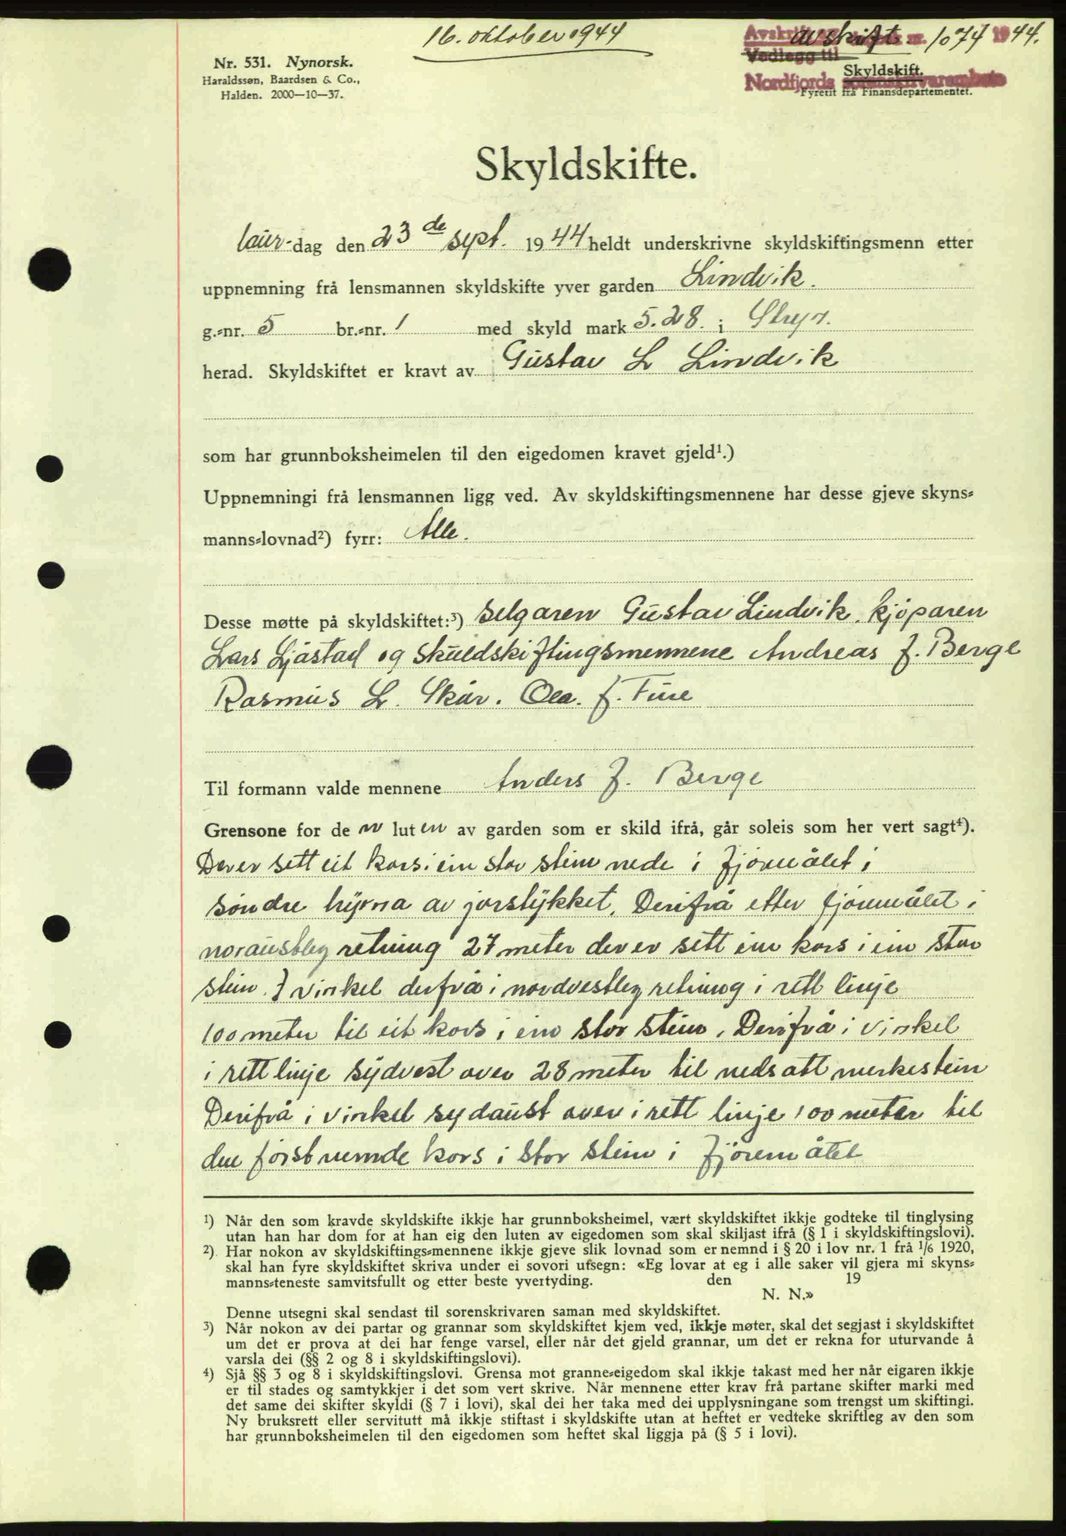 16. oktober 1944
Avskrift nr. 1074 1944.
Vedlegg til
Nordfjords sorenskrivarembete
Nr. 531. Nynorsk.
Haraldssøn, Baardsen & Co.,
Halden. 2000—10—37.
Skyldskift.
Fyretit frå Finansdepartementet.
Skyldskifte.
laur-dag den 23de sept. 1944 heldt underskrivne skyldskiftingsmenn etter
uppnemning frå lensmannen skyldskifte yver garden Lindvik.
g.-nr. 5 br.-nr. 1 med skyld mark 5.28. i Stryn.
herad. Skyldskiftet er kravt av Gustav L Lindvik
som har grunnboksheimelen til den eigedomen kravet gjeld¹.)
Uppnemningi frå lensmannen ligg ved. Av skyldskiftingsmennene har desse gjeve skyns-
manns-lovnad²) fyrr: Alle.
Desse møtte på skyldskiftet:³) selgaren Gustav Lindvik. kjöparen
Lars Ljåstad og skuldskiftingsmennene Andreas J. Berge
Rasmus L. Skår. Ola. J. Fure
Til formann valde mennene Anders J. Berge
Grensone for de n luten av garden som er skild ifrå, går soleis som her vert sagt⁴).
Der er sett eit kors i ein stor stein nede i fjöremålet i
söndre hyrna av jorstykket. Derifrå etter fjöremålet i
noraustleg retning 27 meter der er sett ein kors i ein stor
stein. I vinkel derfrå i nordvestleg retning i rett linje
100 meter til eit kors i ein stor stein. Derifrå i vinkel
i rett linje sydvest over 28 meter til nedsatt merkestein
Derifrå i vinkel sydaust over i rett linje 100 meter til
det först nemde kors i stor stein i fjöremålet
¹) Når den som kravde skyldskifte ikkje har grunnboksheimel, vært skyldskiftet ikkje godteke til tinglysing
utan han har dom for at han eig den luten av eigedomen som skal skiljast ifrå (§ 1 i skyldskiftingslovi).
²) Har nokon av skyldskiftings-mennene ikkje gjeve slik lovnad som er nemnd i § 20 i lov nr. 1 frå ¹/₆ 1920,
skal han fyre skyldskiftet skriva under ei sovori utsegn: «Eg lovar at eg i alle saker vil gjera mi skyns-
manns-teneste samvitsfullt og etter beste yvertyding. den 19
N. N.»
Denne utsegni skal sendast til sorenskrivaren saman med skyldskiftet.
³) Når nokon av dei partar og grannar som skyldskiftet kjem ved, ikkje møter, skal det segjast i skyldskiftet
um det er prova at dei har fenge varsel, eller når det gjeld grannar, um det er rekna for uturvande å
varsla dei (§§ 2 og 8 i skyldskiftingslovi).
⁴) Sjå §§ 3 og 8 i skyldskiftingslovi. Grensa mot granne-eigedom skal ikkje takast med her når eigaren ikkje
er til stades og samtykkjer i det som vert skrive. Når mennene etter krav frå partane skifter marki med
det same dei skifter skyldi (§ 7 i lovi), skal dei her taka med dei upplysningane som trengst um skiftingi.
Ny bruksrett eller servitutt må ikkje stiftast i skyldskifte utan at heftet er vedteke skriftleg av den som
har grunnboksheimelen til den eigedomen som heftet skal liggja på (§ 5 i lovi).